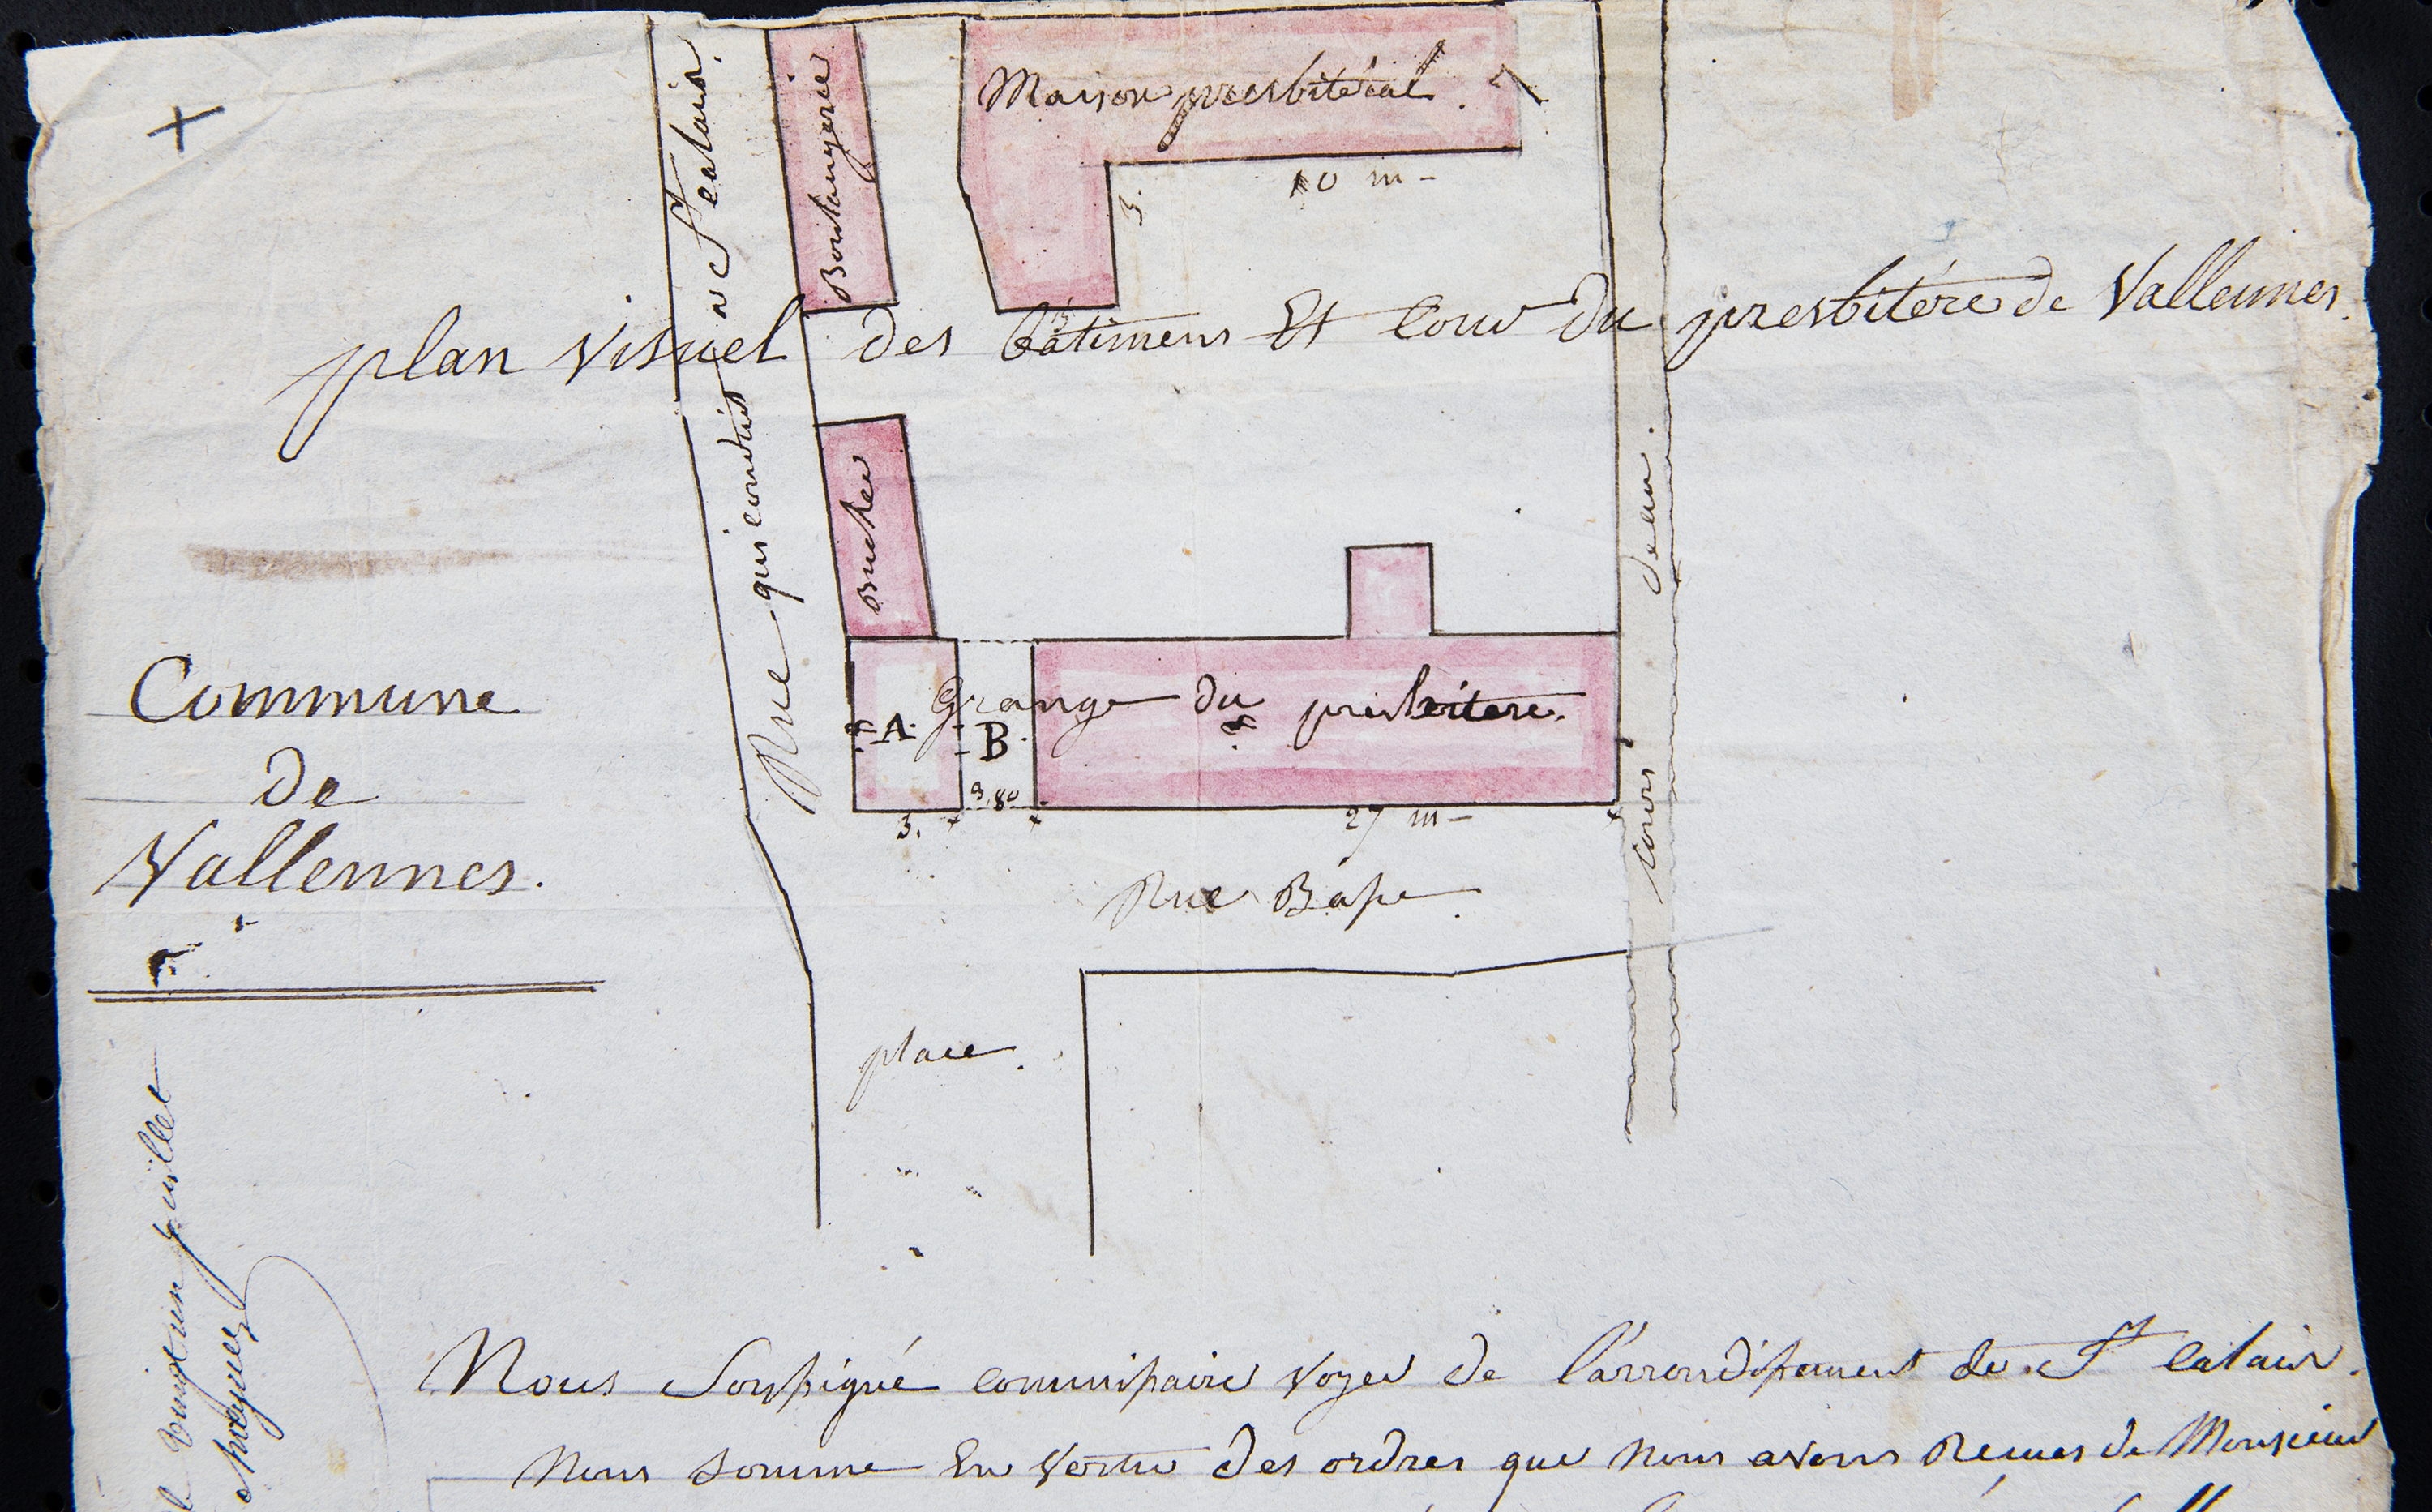 Maison presbitéral. 7
Boulangerie
10 m
3.
plan visuel des bâtimens Et Cour du presbitére de Vallennes.
Rue qui conduit a St Calais.
Bucher
cours deau.
Commune
de
Vallennes.
Grange du presbitere.
8 A B 8
3,80
3. 27 m
Rue Basse
place.
Nous Soussigné commissaire voyer de l'arrondissement de St Calais.
Nous somme En vertu des ordres que nous avons Recues de Monsieur